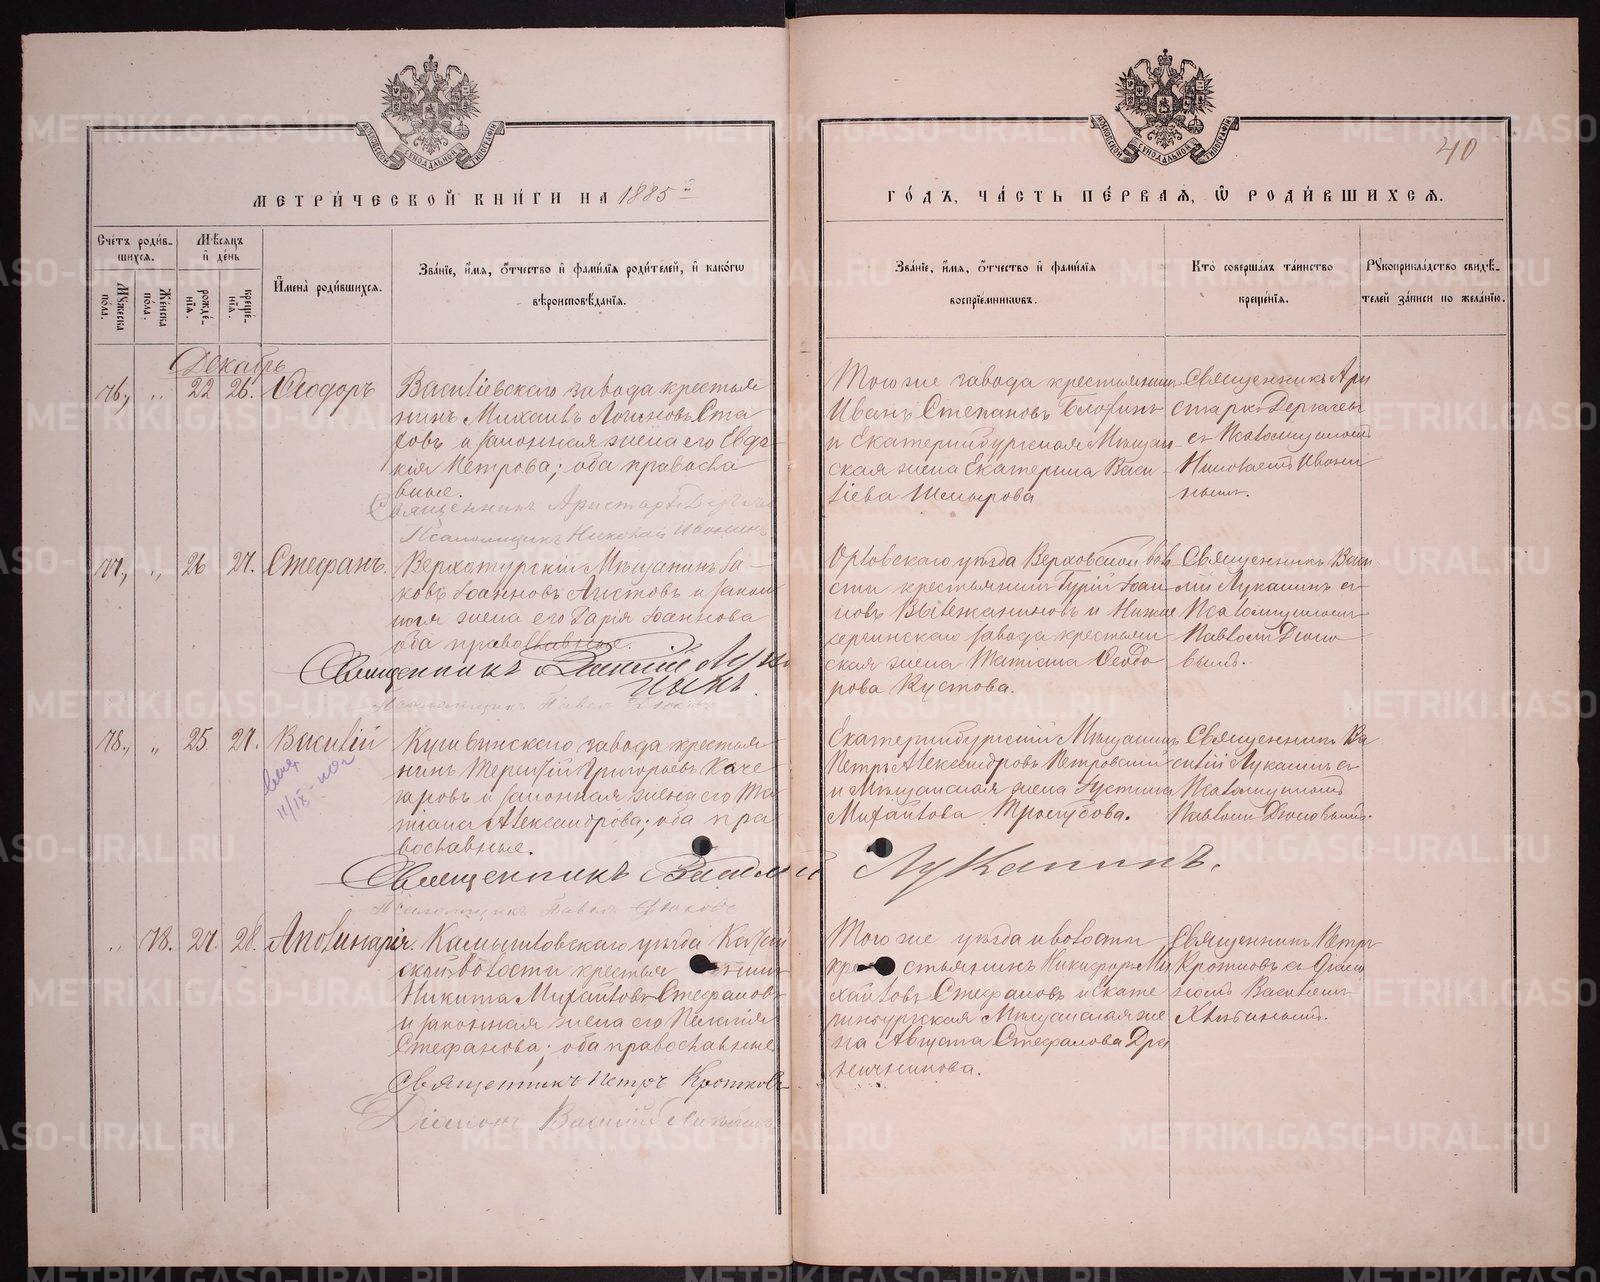 40
МЕТРИЧЕСКОЙ КНИГИ НА 1885 й
ГОДЪ, ЧАСТЬ ПЕРВАЯ, Ѿ РОДИВШИХСѦ.
Счетъ родив-
шихся.
Мужеска пола.
Женска пола.
Мѣсяцъ
и день
рожде-
нія.
креще-
нія.
Имена родившихся.
Званіе, имя, отчество и фамилія родителей, и какого
вѣроисповѣданія.
Званіе, имя, отчество и фамилія
воспріемниковъ.
Кто совершалъ таинство
крещенія.
Рукоприкладство свидѣ-
телей записи по желанію.
Декабрь
76, „ 22 26. Ѳеодоръ
Васильевскаго завода крестья
нинъ Михаилъ Логиновъ
и законная жена его Евдо-
кія Петрова; оба правосла
вные.
Священникъ Аристархъ
Псаломщикъ Николай Ивонинъ
Тогоже завода крестьянинъ
Иванъ Степановъ
и Екатеринбургская Мѣщан-
ская жена Екатерина Васи-
льева
Священникъ Ари
стархъ Дергачевъ
съ Псаломщикомъ
Николаемъ Ивони
нымъ.
77, „ 26 27. Стефанъ.
Верхотурскій Мѣщанинъ Іа-
ковъ Іоанновъ Аистовъ и закон
ная жена его Дарія Іоаннова
оба православные.
Священникъ Василій Лука
нинъ.
Псаломщикъ Павелъ Дюковъ
Орловскаго уѣзда Верховской вол
сти крестьянинъ Гурій Іоан
новъ и Нижне
сергинскаго завода крестьян
ская жена Татіана Ѳеодо
рова Кустова.
Священникъ Васи
лій Луканинъ съ
Псаломщикомъ
Павломъ Дюко
вымъ.
78., „ 25. 27. Василій
11/IX
Кушвинскаго завода крестья
нинъ Терентій Григорьевъ Каче
гаровъ и законная жена его Та
тіана Александрова; оба пра
вославные.
Священникъ Василій Луканинъ.
Псаломщикъ Павелъ Дюковъ
Екатеринбургскій Мѣщанинъ
Петръ Александровъ Петровскій
и Мѣщанская жена Іустина
Михайлова
Священникъ Ва
силій Луканинъ съ
Псаломщикомъ
Павломъ Дюковымъ.
„ 78. 27. 28. Аполинарія.
Камышловскаго уѣзда
ской волости крестьянинъ
Никита Михайловъ Стефановъ
и законная жена его Пелагія
Стефанова; оба православные
Священникъ Петръ Кротковъ
Діаконъ Василій
Тогоже уѣзда и волости
крестьянинъ Никифоръ Ми
хайловъ Стефановъ и Екате
ринбургская Мѣщанская же
на Августа Стефанова Дра
нишникова.
Священникъ Петръ
Кротковъ съ Діако
номъ Василіемъ
Хлѣбинымъ.
METRIKI.GASO-URAL.RU